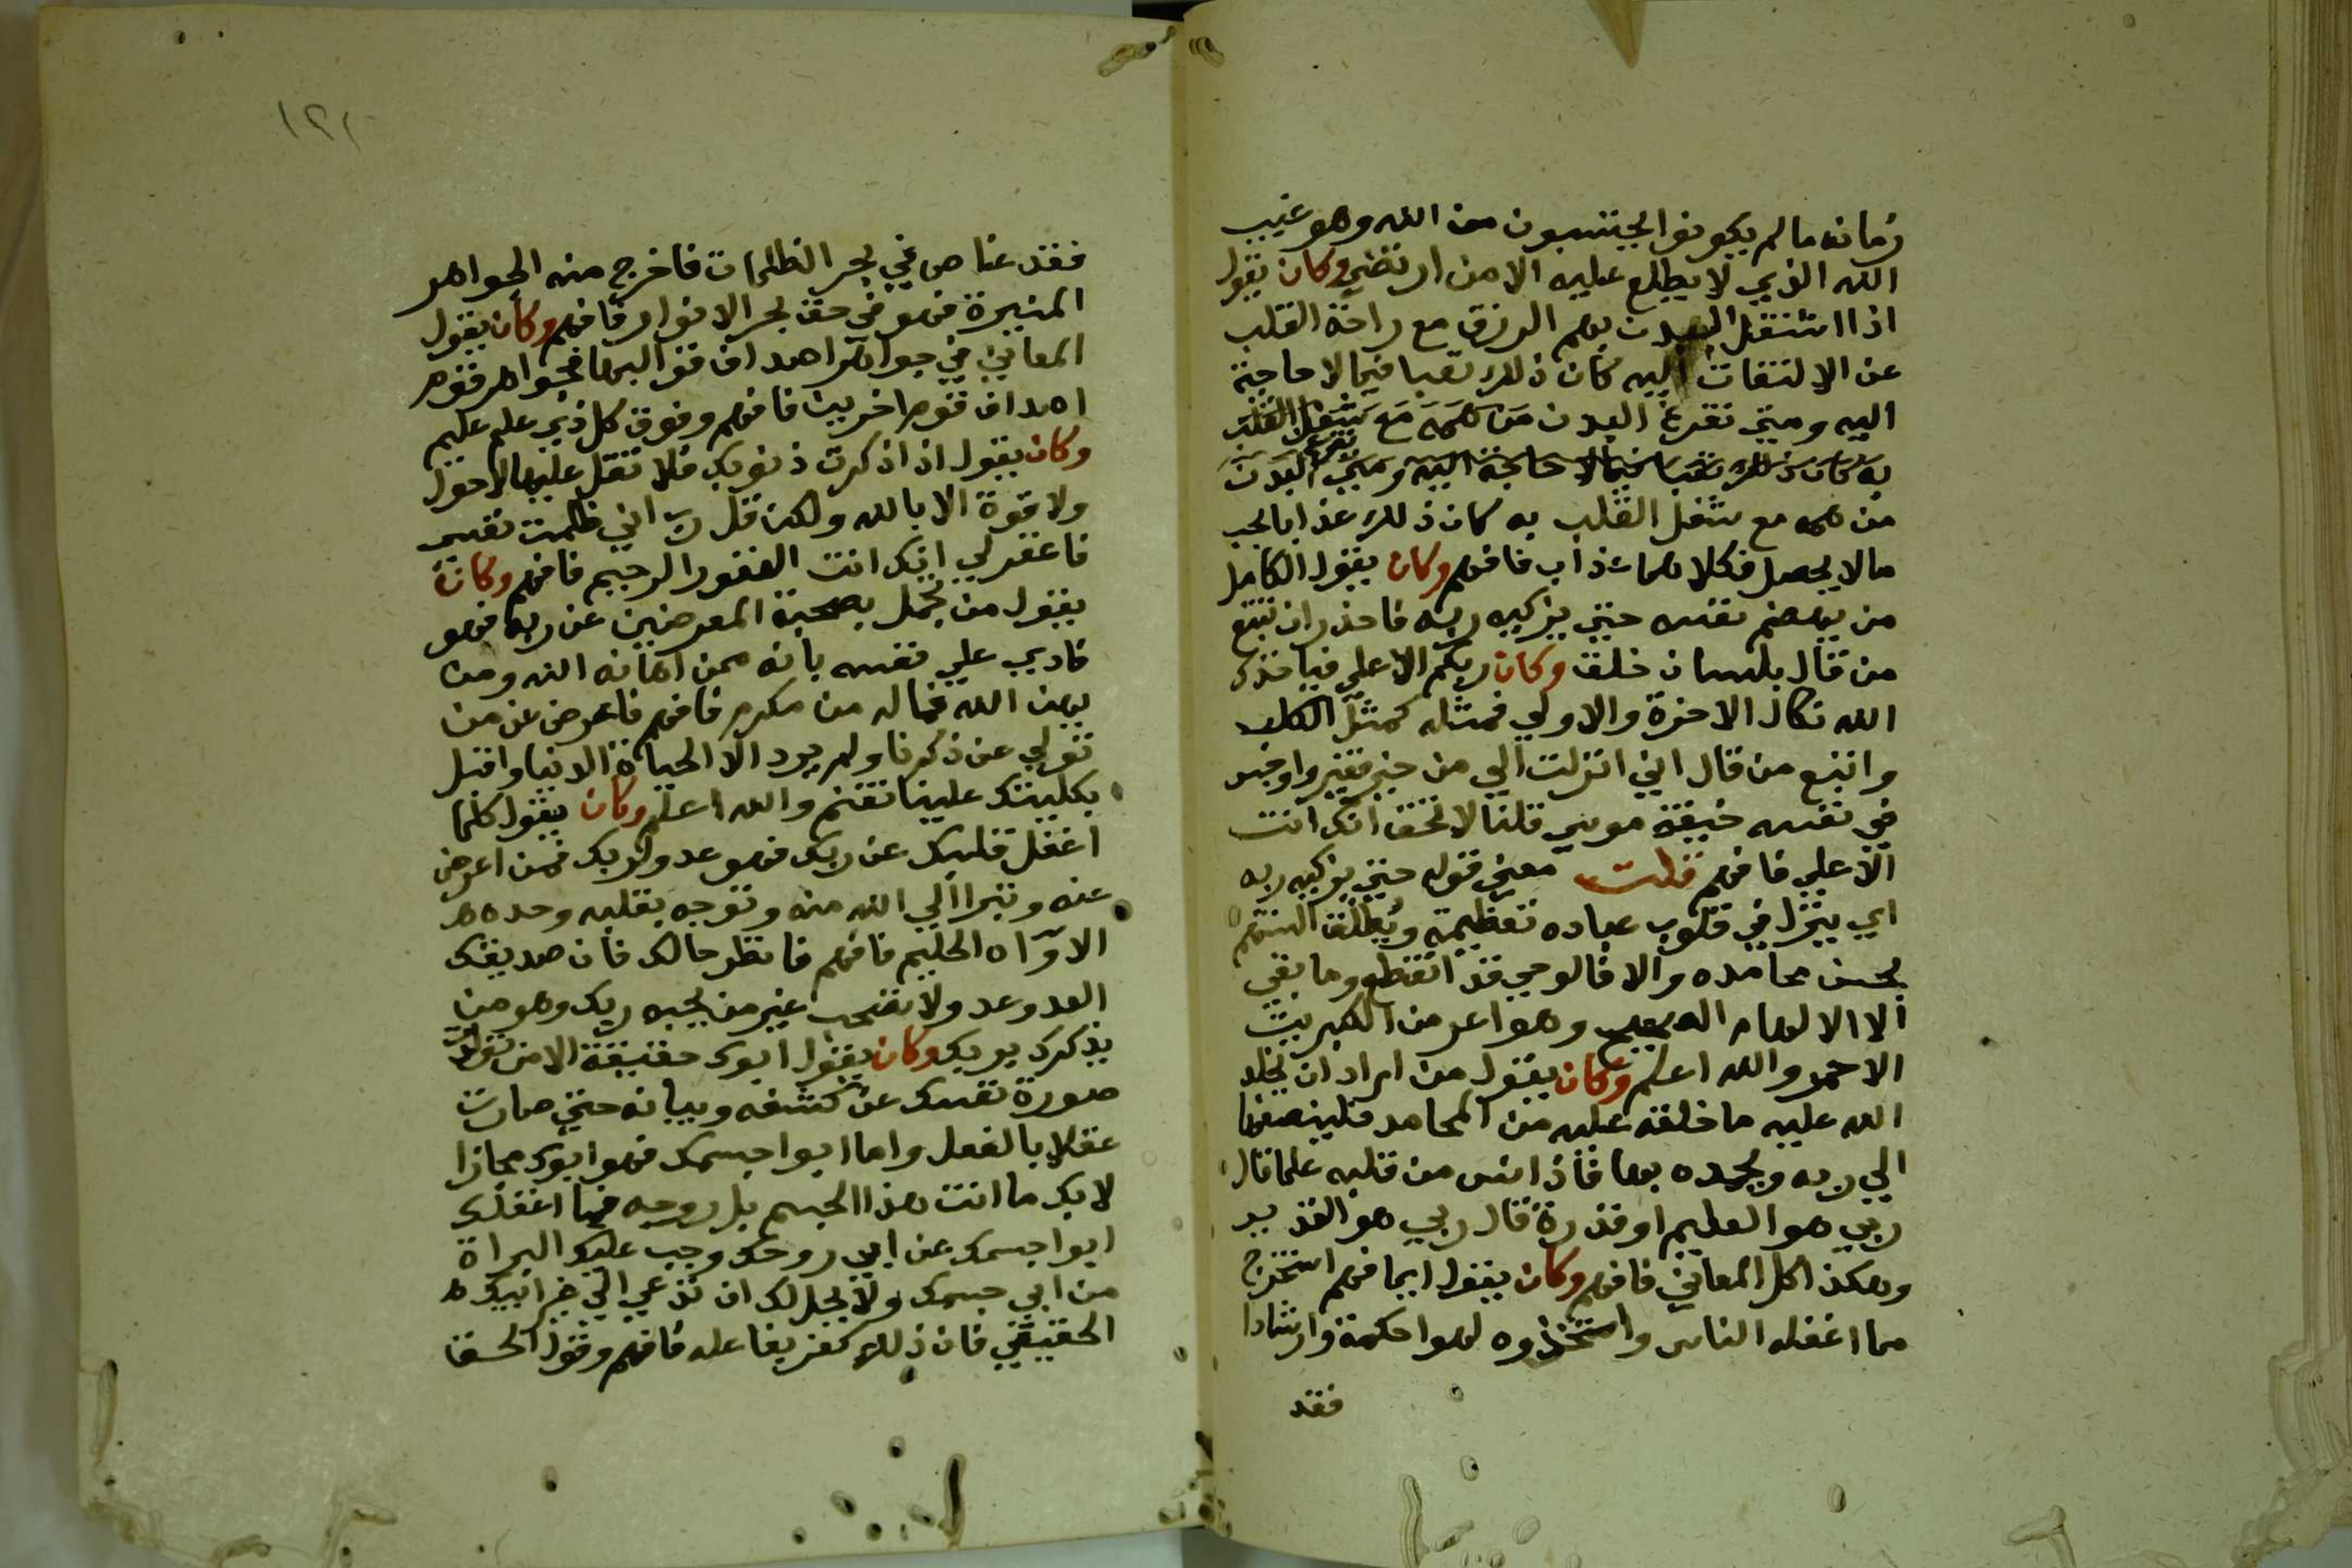 زمانه مالم يكونوا يحتسبون من الله وهو غيب
الله الذي لا يطلع عليه الا من ارتضي وكان يقول
اذا اشتغل البدن بهم الرزق مع راحة القلب
عن الالتفات اليه كان ذلك تعبا فيما لا حاجة
اليه ومتي تفرغ البدن من همه مع شغل القلب
به كان ذلك تعبا فيما لا حاجة اليه ومتي تفرغ البدن
من همه مع شغل القلب به كان ذلك عذابا بحب
مالا يحصل فكلاهما عذاب فافهم وكان يقول الكامل
من يهضم نفسه حتي يزكيه ربه فاحذر ان تتبع
من قال بلسان خلق وكان ربكم الاعلي فياخذك
الله نكال الاخرة والاولي فمثله كمثل الكلب
واتبع من قال اني انزلت الي من خير فقير واوجد
في نفسه خيفة موسي قلنا لا تخف انك انت
الاعلي فافهم قلت معني قوله حتي يزكيه ربه
اي ينزل في قلوب عباده تعظيمه ويطلق السنتهم
بحسن محامده والا فالوحي قد انقطع وما بقي
الا الالهام الصحيح وهو اعز من الكبريت
الاحمر والله اعلم وكان يقول من اراد ان يخلد
الله عليه ما خلقه عليه من المحامد فلينصفها
الي ربه ويحمده بها فاذا انس من قلبه علما قال
ربي هو العليم او قدرة قال ربي هو القدير
وهكذا كل المعاني فافهم وكان يقول ايما فهم استخرج
مما اغفله الناس واتخذوه لهوا حكمة وارشادا
فقد
١٢١
فقد غاص في بحر الظلمات فاخرج منه الجواهر
المنيرة فهو في حق بحر الانوار فافهم وكان يقول
المعاني في جواهر اصداف قوالبها فجواهر قوم
اصداف قوم اخرين فافهم وفوق كل ذي علم عليم
وكان يقول اذا ذكرت ذنوبك فلا تقل عليها لا حول
ولا قوة الا بالله ولكن قل رب اني ظلمت نفسي
فاغفر لي انك انت الغفور الرحيم فافهم وكان
يقول من تجمل بصحبة المعرضين عن ربه فهو
نادي علي نفسه بانه ممن اهانه الله ومن
يهن الله فماله من مكرم فافهم فاعرض عن من
تولي عن ذكرنا ولم يرد الا الحياة الدنيا واقبل
بكليتك علينا تغنم والله اعلم وكان يقول كلما
اغفل قلبك عن ربك فهو عدو لربك فمن اعرض
عنه وتبرا الي الله منه وتوجه بقلبه وحده هو
الاوّاه الحليم فافهم فانظر حالك فان صديقك
العدو عدو ولا تصحب غير من يحبه ربك وهو من
يذكرك بربك وكان يقول ابوك حقيقة الامن تولد
صورة نفسك عن كشفه وبيانه حتي صارت
عقلا بالفعل واما ابوا جسمك فهو ابوك مجازا
لا بك ما انت هذا الجسم بل روحه فما اغفلك
ابوا جسمك عن ابي روحك وجب عليك البراة
من ابي جسمك ولا يحل لك ان تدعي الي غير ابيك
الحقيقي فان ذلك كفر بفاعله فافهم وقول الحق